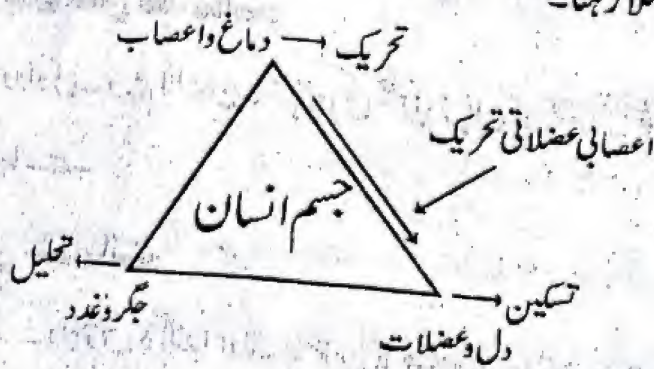 دماغ واعصاب → تحریک
اعصابی عضلاتی تحریک
جسم انسان
تحلیل
جگر وغدد
تسکین
دل وعضلات